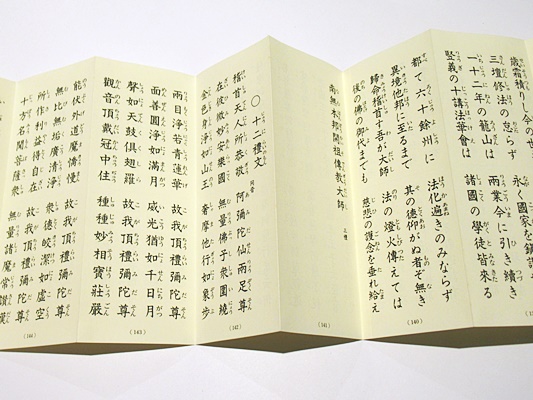 歳霜積りし今の世
三壇修法の怠らず 永く國家を鎮護
一十二年の籠山は 兩業今に引き續き
堅義の十講法華會は 諸國の學徒皆來る
都て六十餘州に 法化遍きのみならず
異境他邦に至るまで 其の德仰がぬ者ぞ無き
歸命稽首す吾が大師 法の燈火傳えては
後の佛の御代までも 慈悲の護念を垂れ給え
(140)
南無本邦開祖傳教大師 三禮
(141)
〇十二禮文 同音
稽首天人所恭敬 阿彌陀仙兩足尊
在彼微妙安樂國 無量佛子衆圍繞
金色身淨如山王 奢摩他行如象步
(142)
兩目淨若青蓮華 故我頂禮彌陀尊
面善圓淨如滿月 威光猶如千日月
聲如天鼓俱翅羅 故我頂禮彌陀尊
觀音頂戴冠中住 種種妙相寶莊嚴
(143)
能伏外道魔憍慢 故我頂禮彌陀尊
無比無垢廣清淨 衆德皎潔如虛空
所作利益得自在 故我頂禮彌陀尊
十方名聞菩薩衆 無量諸魔常讃歎
(144)